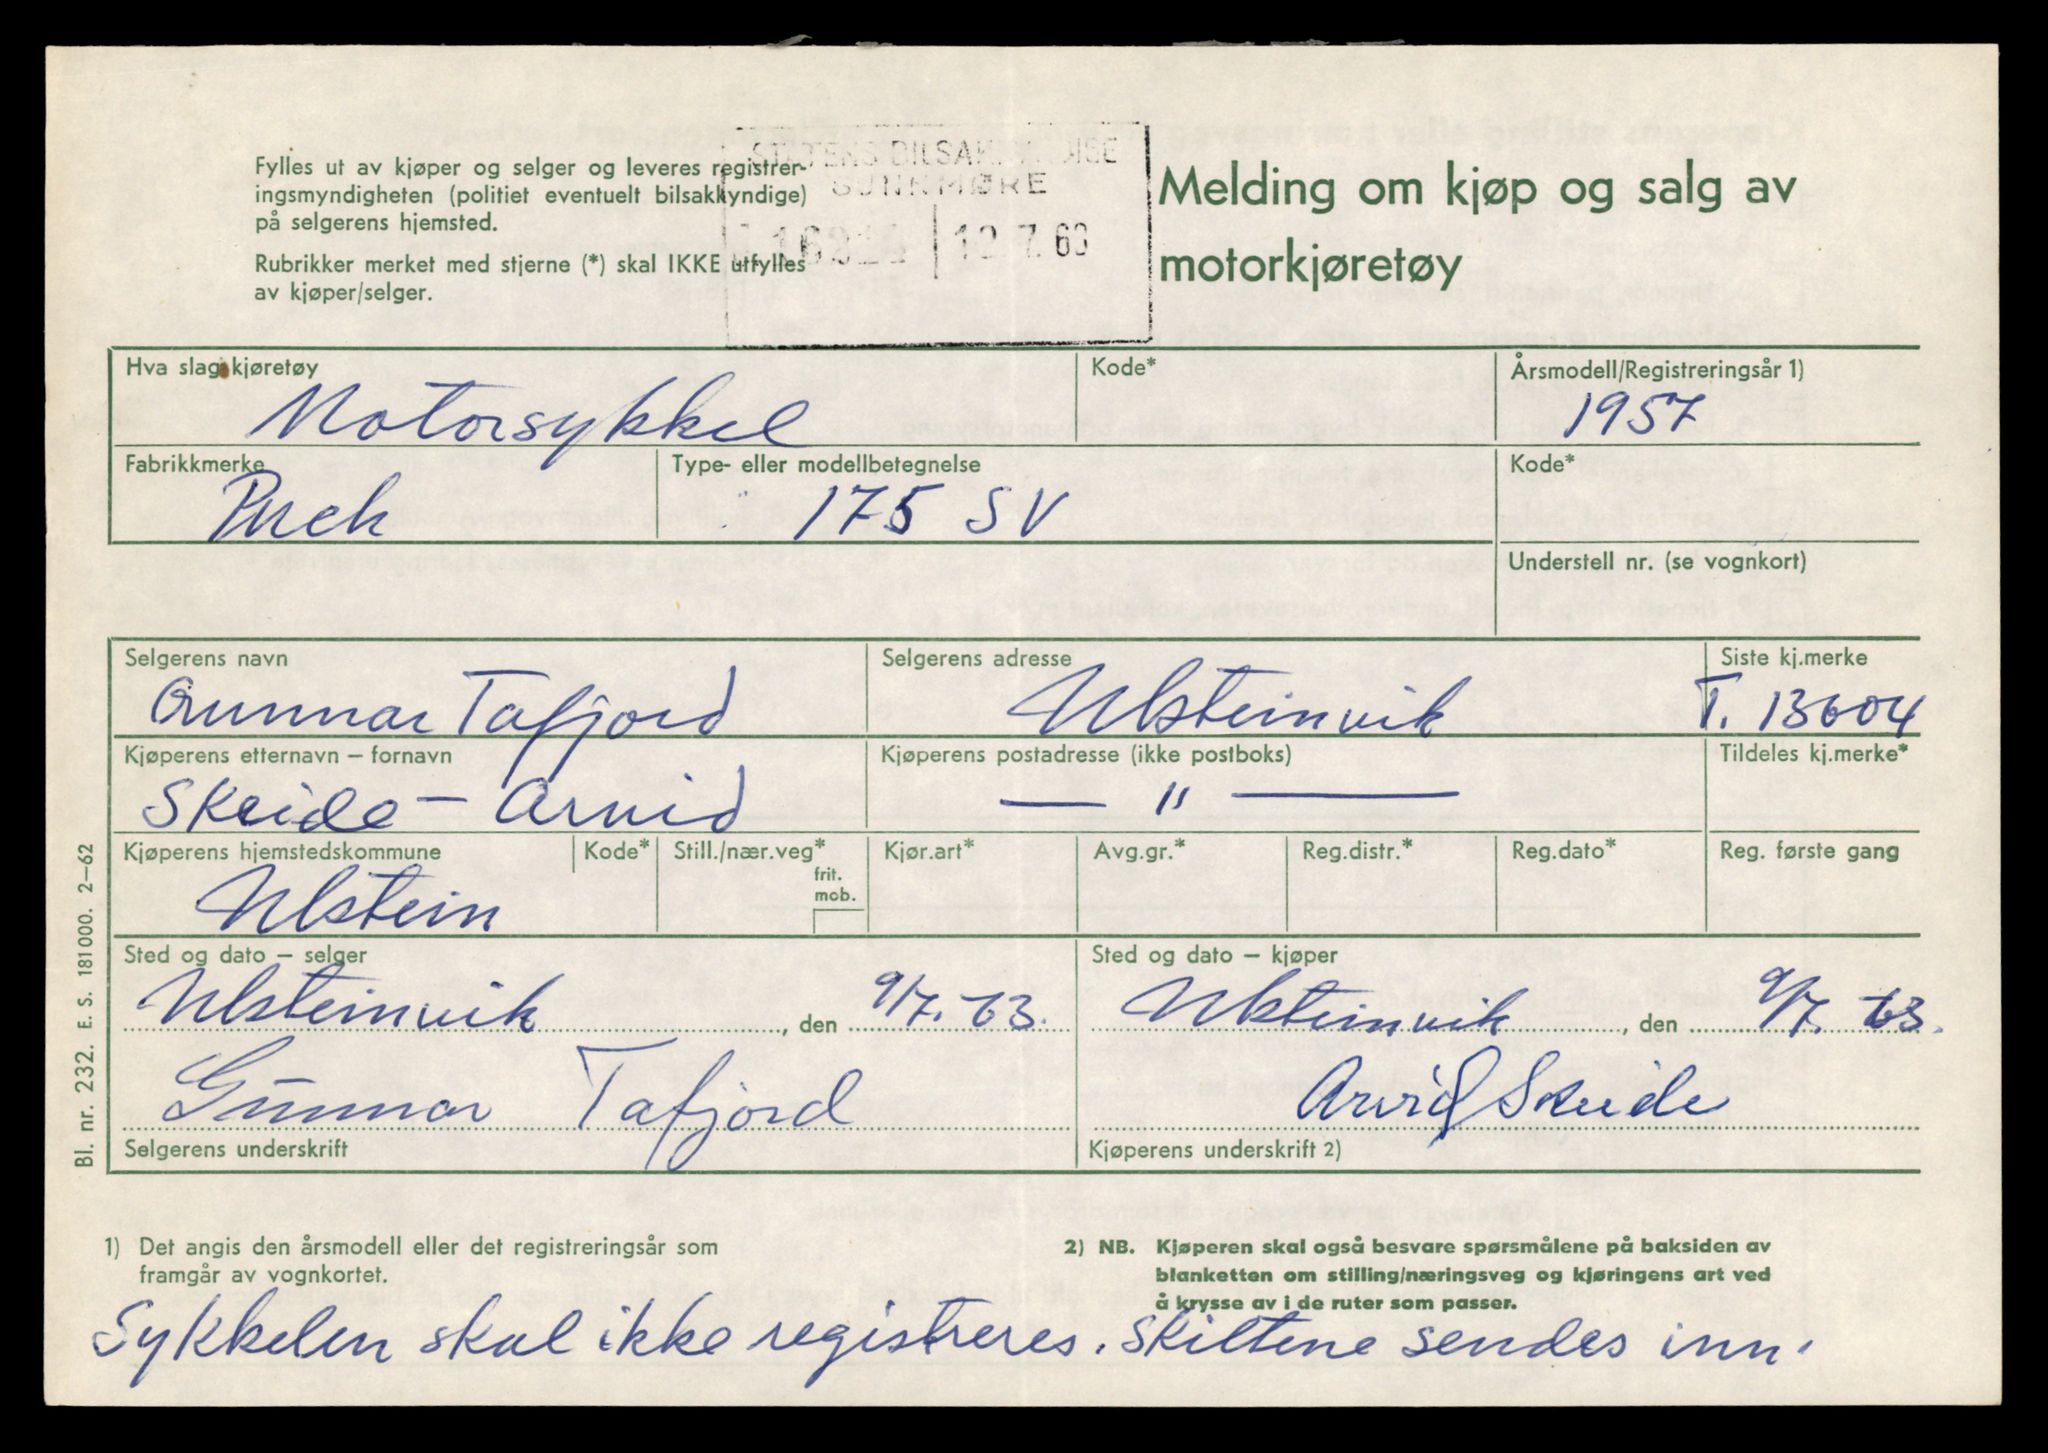 Fylles ut av kjøper og selger og leveres registrer-
ingsmyndigheten (politiet eventuelt bilsakkyndige)
på selgerens hjemsted.
Rubrikker merket med stjerne (*) skal IKKE utfylles
av kjøper/selger.
STATENS BILSAKKYNDIGE
SUNNMØRE
12.7.63
Melding om kjøp og salg av
motorkjøretøy
Hva slag kjøretøy Kode* Årsmodell/Registreringsår 1)
Motorsykkel 1957
Fabrikkmerke Type- eller modellbetegnelse Kode*
Puch 175 SV
Understell nr. (se vognkort)
Selgerens navn Selgerens adresse Siste kj.merke
Gunnar Tafjord Ulsteinvik T. 13604
Kjøperens etternavn – fornavn Kjøperens postadresse (ikke postboks) Tildeles kj.merke*
Skeide – Arvid — " —
Kjøperens hjemstedskommune Kode* Still./nær.veg* Kjør.art* Avg.gr.* Reg.distr.* Reg.dato* Reg. første gang
frit.
mob.
Ulstein
Sted og dato – selger Sted og dato – kjøper
Ulsteinvik, den 9/7. 63. Ulsteinvik, den 9/7. 63.
Gunnar Tafjord Arvid Skeide
Selgerens underskrift Kjøperens underskrift 2)
Bl. nr. 232. E. S. 181000. 2–62
1) Det angis den årsmodell eller det registreringsår som
framgår av vognkortet.
2) NB. Kjøperen skal også besvare spørsmålene på baksiden av
blanketten om stilling/næringsveg og kjøringens art ved
å krysse av i de ruter som passer.
Sykkelen skal ikke registreres. Skiltene sendes inn.